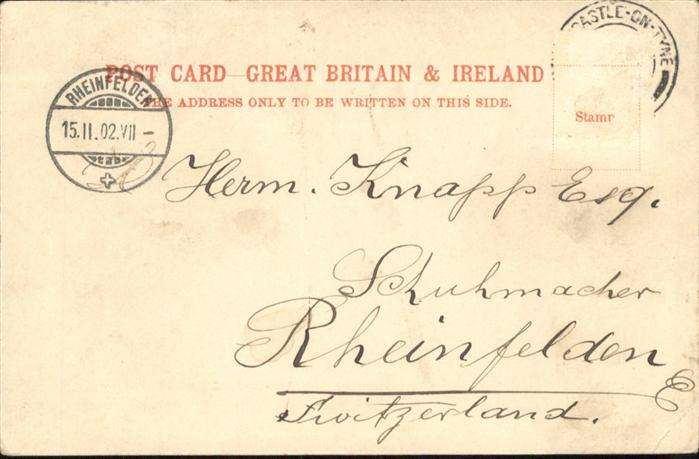 POST CARD GREAT BRITAIN & IRELAND
THE ADDRESS ONLY TO BE WRITTEN ON THIS SIDE.
CASTLE-ON-TYNE
Stamp
RHEINFELDEN
15.II.02.VII –
Herm. Knapp Esq.
Schuhmacher
Rheinfelden
Switzerland.